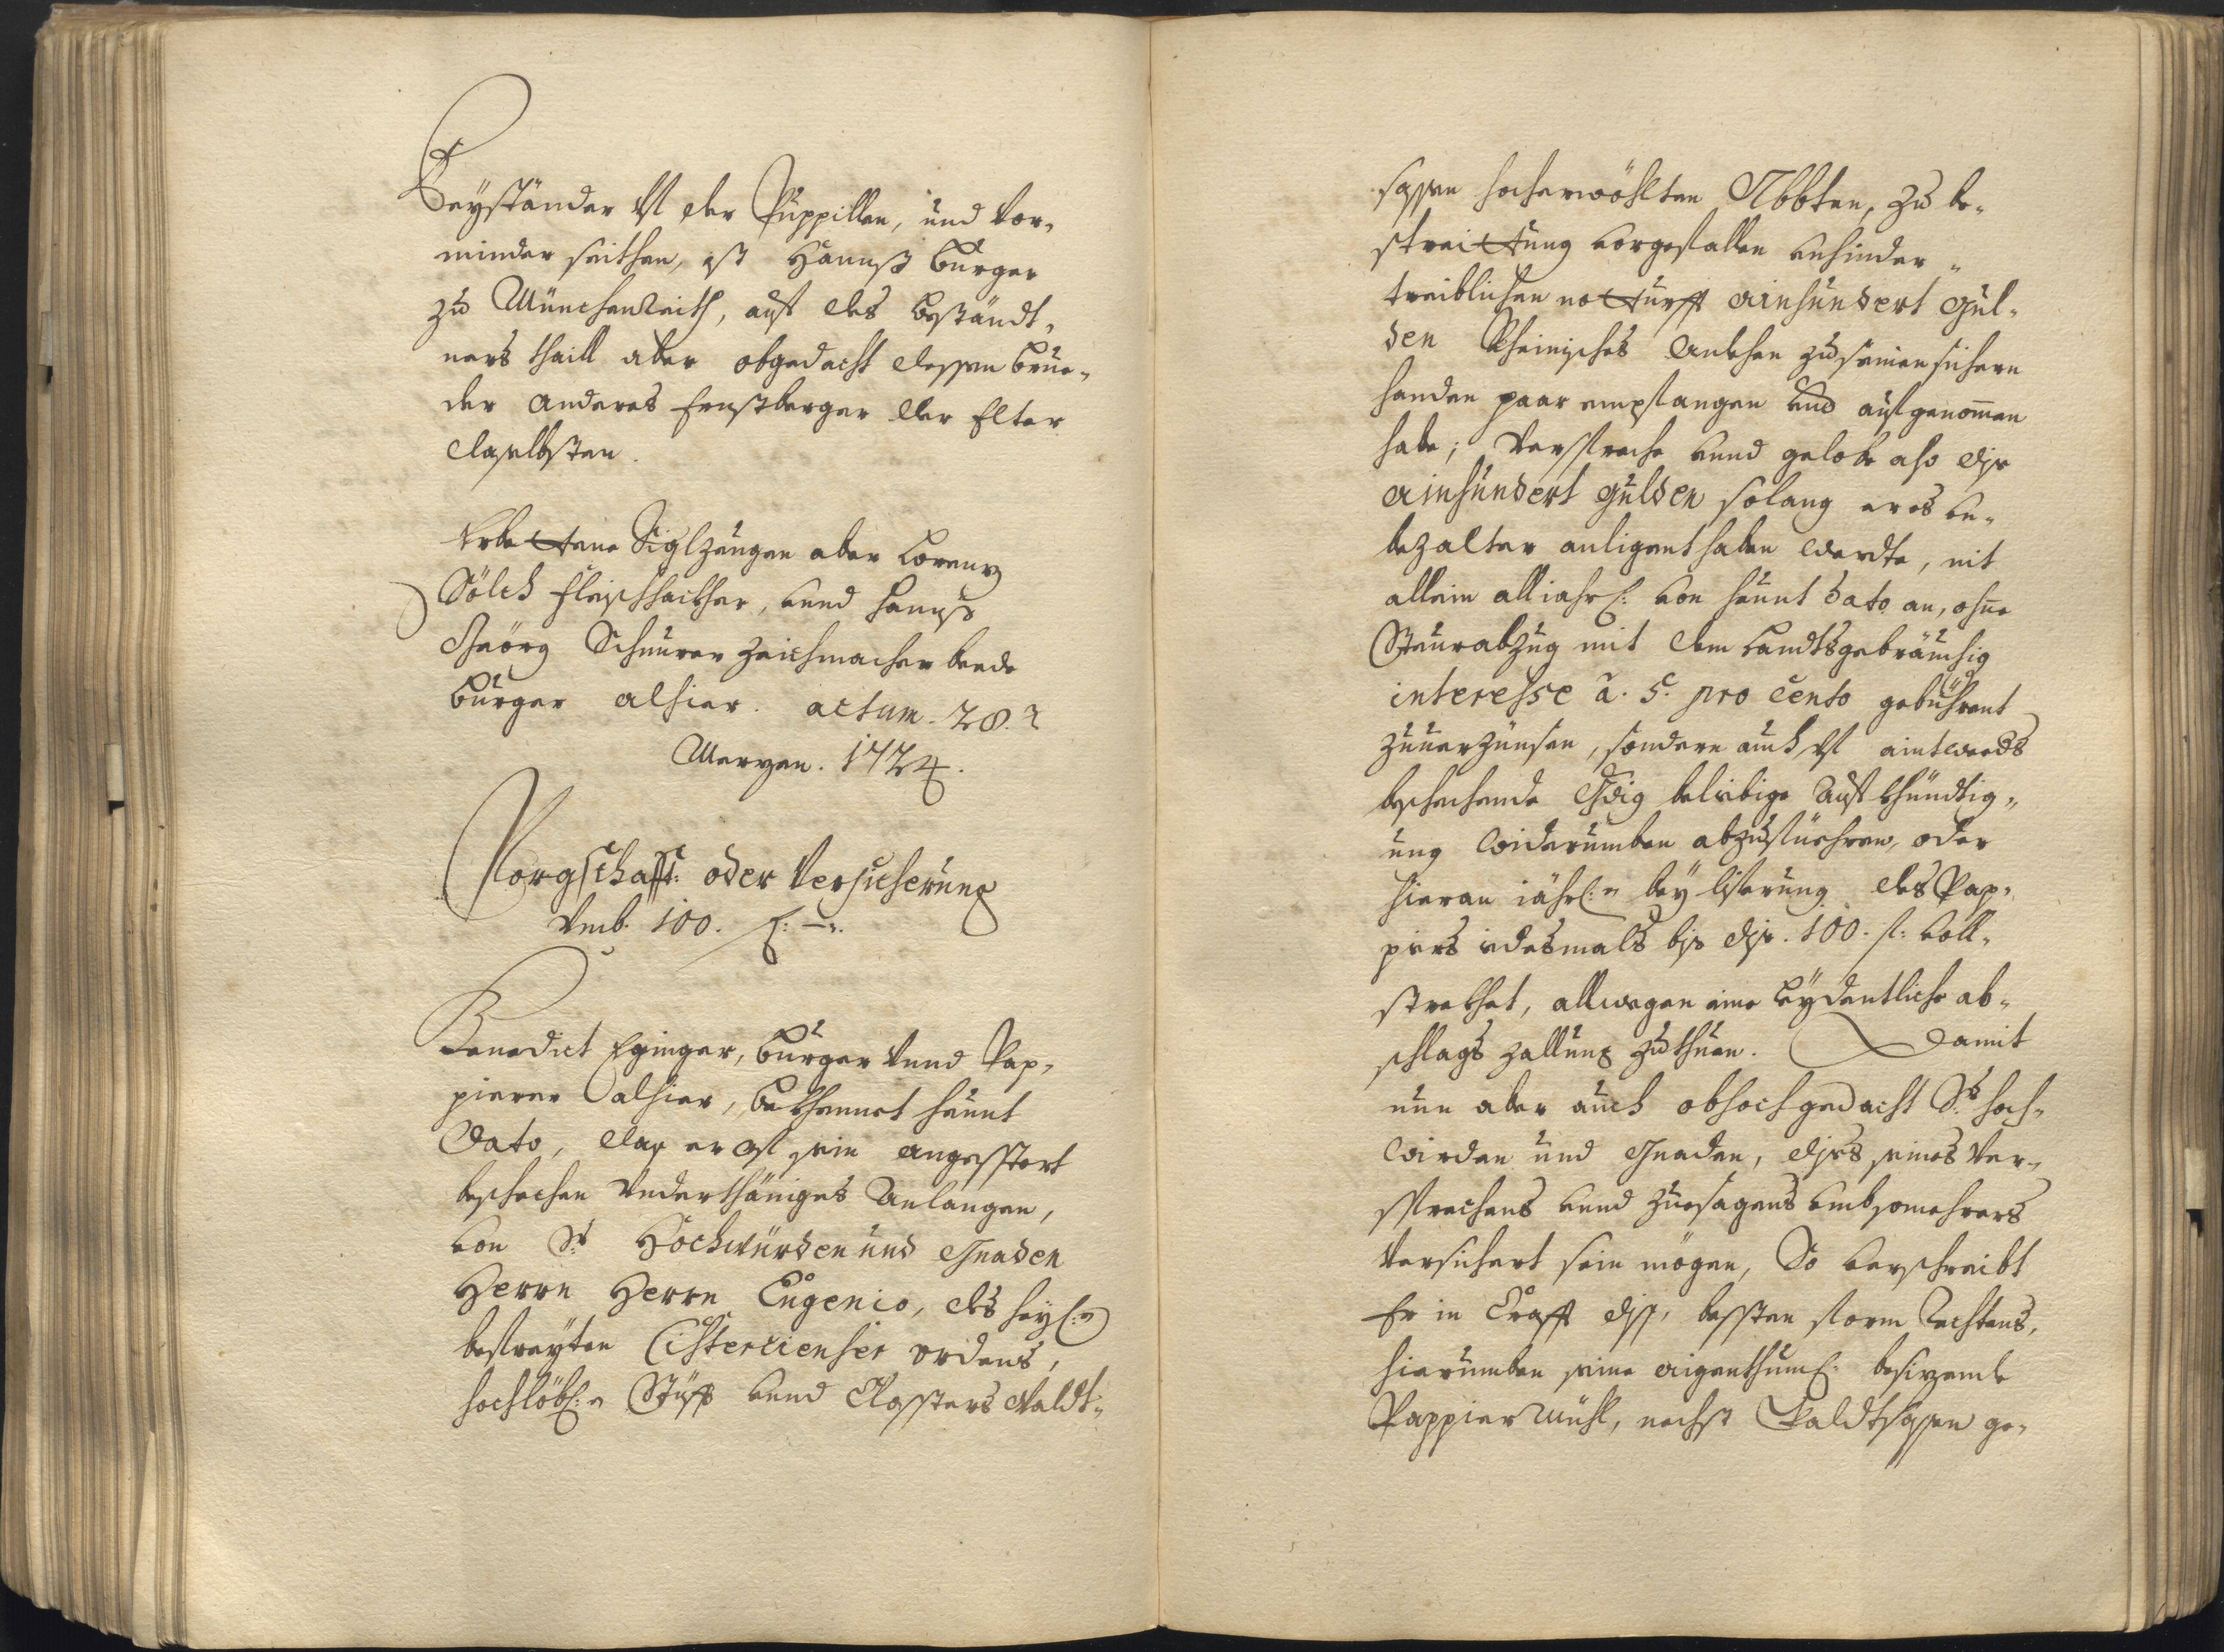 Beyständer uf der Puppillen, und Vor-
minder seithen, ist Hannß Burger
zu Münchenreith, auf des beständt-
ners thaill aber obgedacht dessen brue-
der Anderes Ernstberger der Elter
daselbsten.
Erbettene Siglzeugen aber Lorenz
Sölch Fleischhackher, unnd Hannß
Geörg Schnurer Zeichmacher beede
burger alhier. actum. 28.
Merzen. 1724.
Porgschafft: oder Versicherung
Vmb. 100. f: –.
Benedict Eginger, burger Vnnd Pap-
pierer alhier, bekhennet heunt
Dato, das er uf sein angesstert
beschechen Vnderthäniges Anlangen,
von Sr. Hochwürden und Gnaden
Herrn Herrn Eugenio, des heyl:n
befreyten Cistercienser ordens,
hochlöbl:n Stüfft unnd Closters Waldt-
sassen hocherwöhlten Abbten, zu be-
streittung vorgefallen unhinder-
treiblichen notturfft ainhundert gul-
den Rheinisches Anlehen zu seinen sichern
handen paar empfangen und aufgenommen
habe; Verspreche unnd gelobe also dise
ainhundert gulden solang er es un-
bezalter anligent haben werdte, nit
allein alliahrl: von heunt dato an, ohne
Steurabzug mit dem Landtsgebräuchig
interesse à. 5. pro cento gebührent
zuuerzünsen, sondern auch uf aintweeds
beschechende beliebige Aufkhündtig-
ung widerumben abzuführen, oder
hieran iährl:n bey liferung des Pap-
piers iedesmals bis dise. 100. f: voll-
strekhet, allwegen eine leydentliche ab-
schlags zallung zuthuen. Damit
nun aber auch obhochgedacht Sr. hoch-
würden und Gnaden, dises seines Ver-
sprechens unnd zuesagens umbsomehrers
Versichert sein mögen, So verschreibt
Er in Crafft diss, bessten form Rechtens,
hierumben seine aigenthuml: besizende
Pappiermühl, nechst Waldtsassen ge-